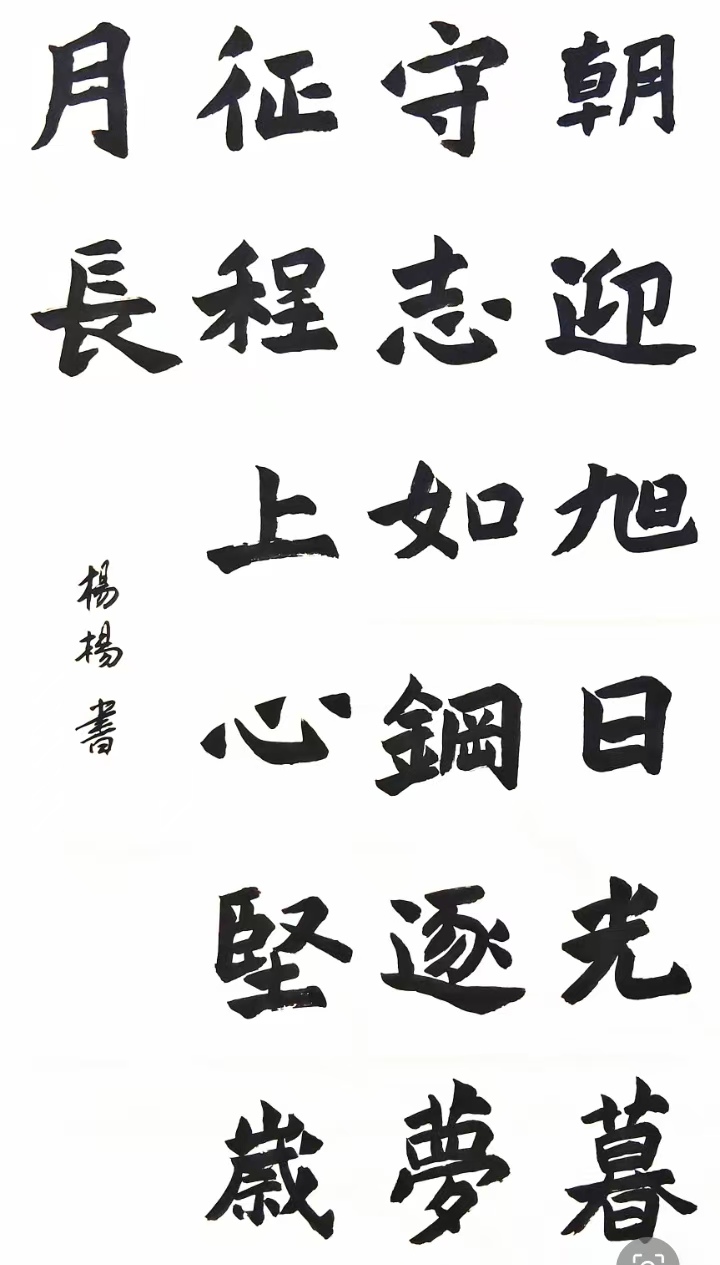 朝迎旭日光暮
守志如鋼逐夢
征程上心堅歲
月長
楊楊書